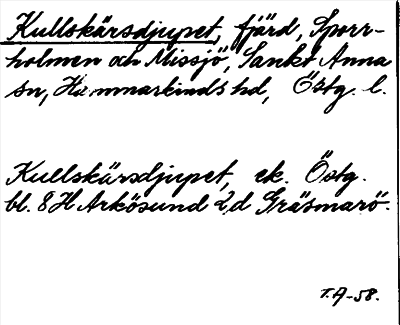 Kullskärsdjupet, fjärd, Sporr-
holmen och Missjö, Sankt Anna
sn, Hammarkinds hd, Östg. l.
Kullskärsdjupet, ek. Östg.
bl. 8 H Arkösund 2,d Gräsmarö.
T.A-58.